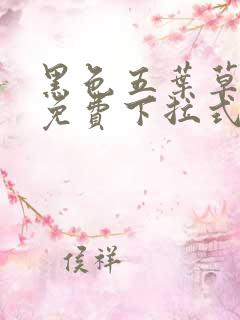 黑色五葉草
免費下拉式
侯祥